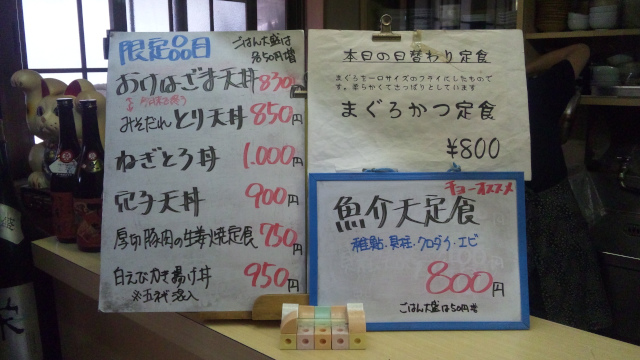 限定品目
ごはん大盛は
各50円増
おけはざま天丼 830円
みそだれとり天丼 850円
ねぎとろ丼 1.000円
穴子天丼 900円
厚切豚肉の生姜焼定食 750円
白えびかき揚げ丼 950円
本日の日替わり定食
まぐろを一口サイズのフライにしたもので
す。柔らかくてさっぱりとしています
まぐろかつ定食
¥800
チョーオススメ
魚介天定食
稚鮎・貝柱・クロダイ・エビ
800円
ごはん大盛は50円増